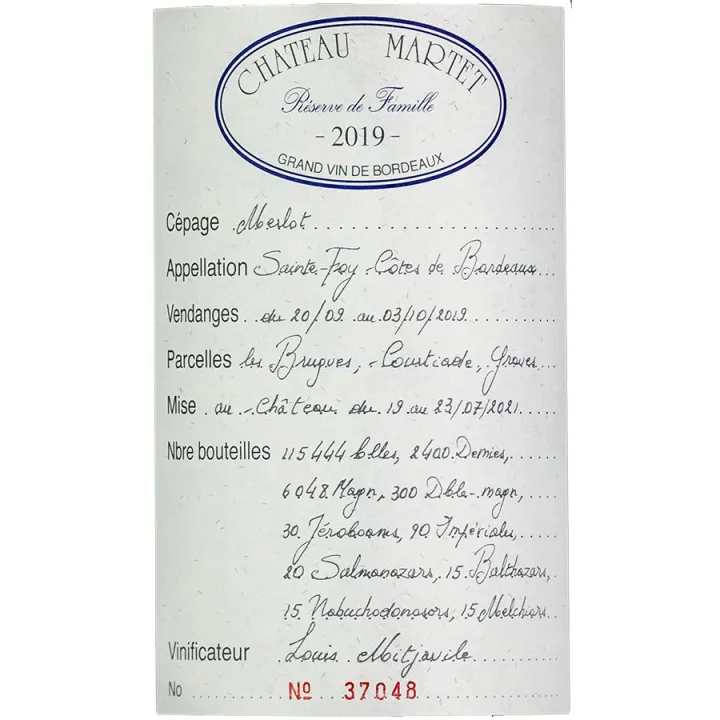 CHATEAU MARTET
Réserve de Famille
- 2019 -
GRAND VIN DE BORDEAUX
Cépage Merlot
Appellation Sainte-Foy-Côtes de Bordeaux
Vendanges du 20/09 au 03/10/2019
Parcelles les Brugues, Coustiade, Graves
Mise au Château du 19 au 23/07/2021
Nbre bouteilles 115444 blles, 2400 Demies,
6048 Magn, 300 Dble-magn,
30 Jéroboams, 90 Impériales,
20 Salmanazars, 15 Balthazars,
15 Nabuchodonosors, 15 Melchiors
Vinificateur Louis Mitjavile
No Nº 37048